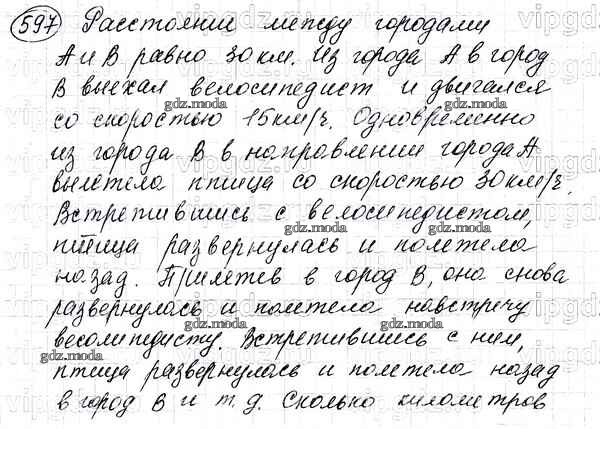 597 Расстояние между городами
А и В равно 30 км. Из города А в город
В выехал велосипедист и двигался
со скоростью 15 км/ч. Одновременно
из города В в направлении города А
вылетела птица со скоростью 30 км/ч.
Встретившись с велосипедистом,
птица развернулась и полетела
назад. Прилетев в город В, она снова
развернулась и полетела навстречу
весолипидисту. Встретившись с ним,
птица развернулась и полетела назад
в город В и т.д. Сколько километров